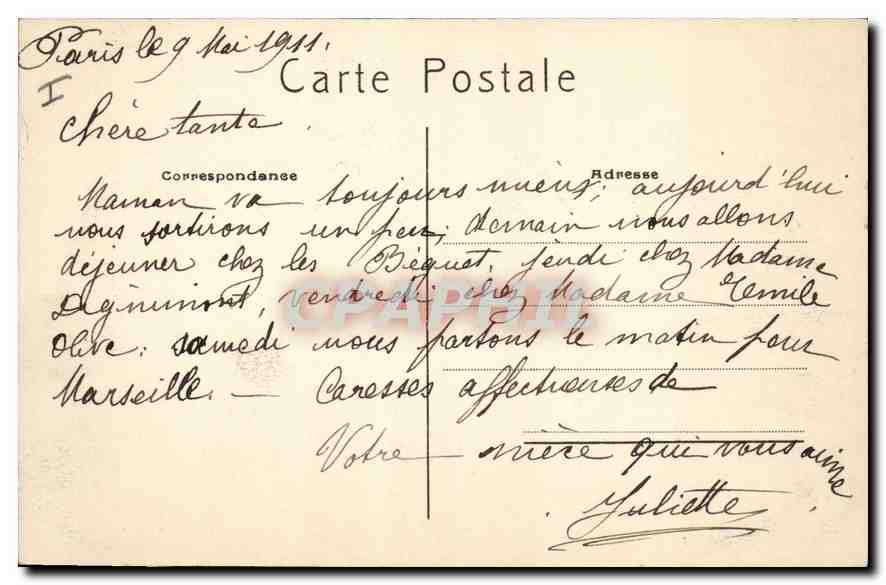 Paris le 9 Mai 1911.
Carte Postale
I
Chère tante
Correspondance
Adresse
Maman va toujours mieux; aujourd'hui
nous sortirons un peu; demain nous allons
déjeuner chez les Béguet, jeudi chez Madame
vendredi chez Madame Emile
Olive; samedi nous partons le matin pour
Marseille. — Caresses affectueuses de
Votre nièce qui vous aime
Juliette
CPAPHIL